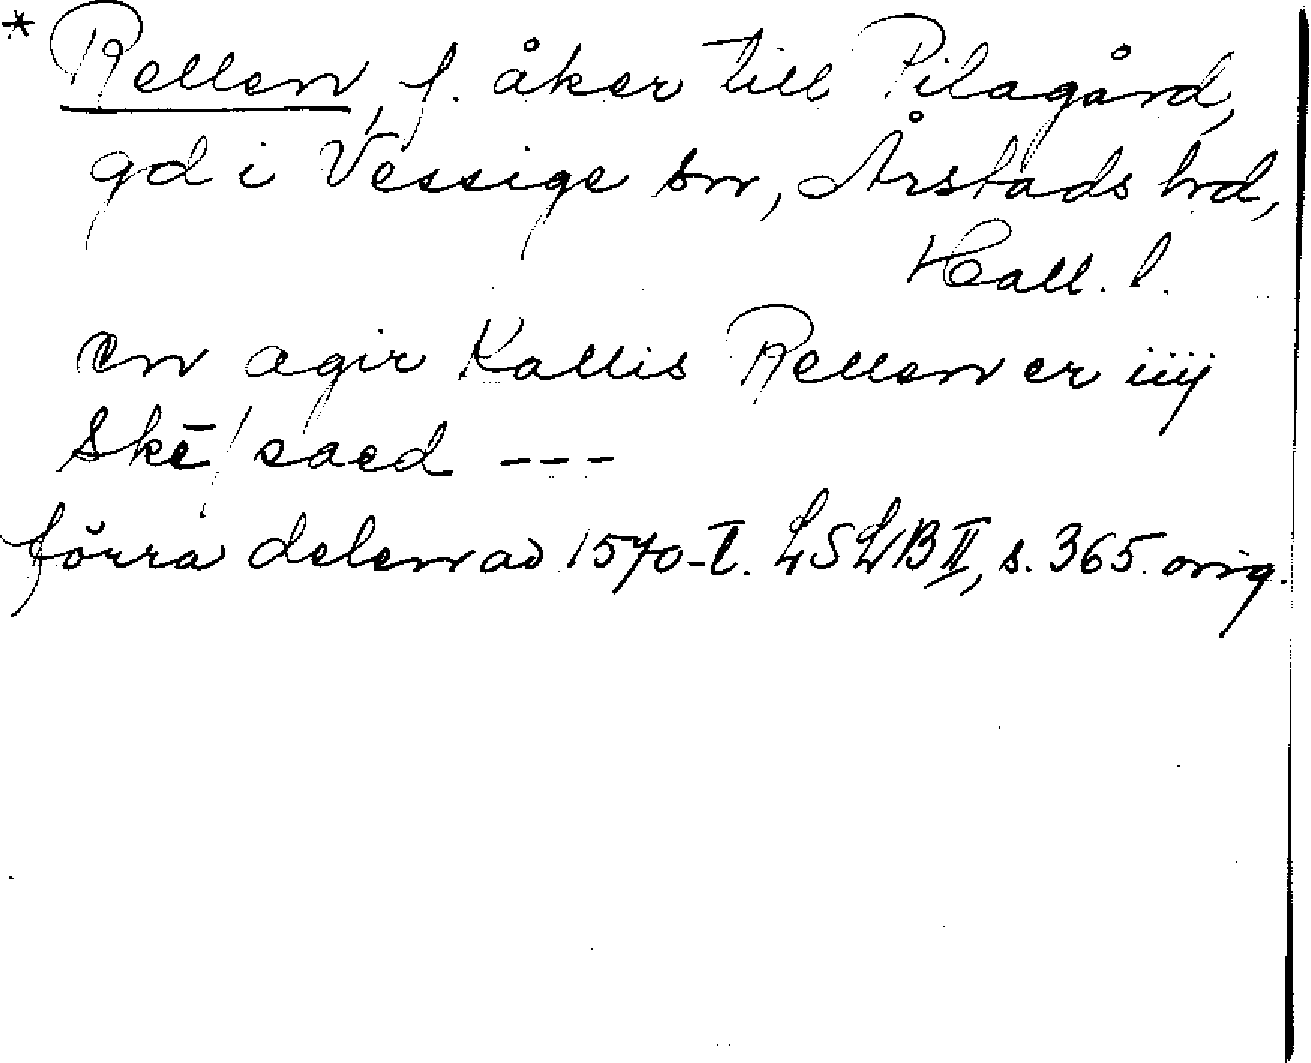 * Rellen, f. åker till Pilagård,
gd i Vessige sn, Årstads hd,
Hall. l.
en agir Kallis Rellen er iiij
Skē/saed ---
förra delen av 1570-t. LSLB II, s. 365. orig.